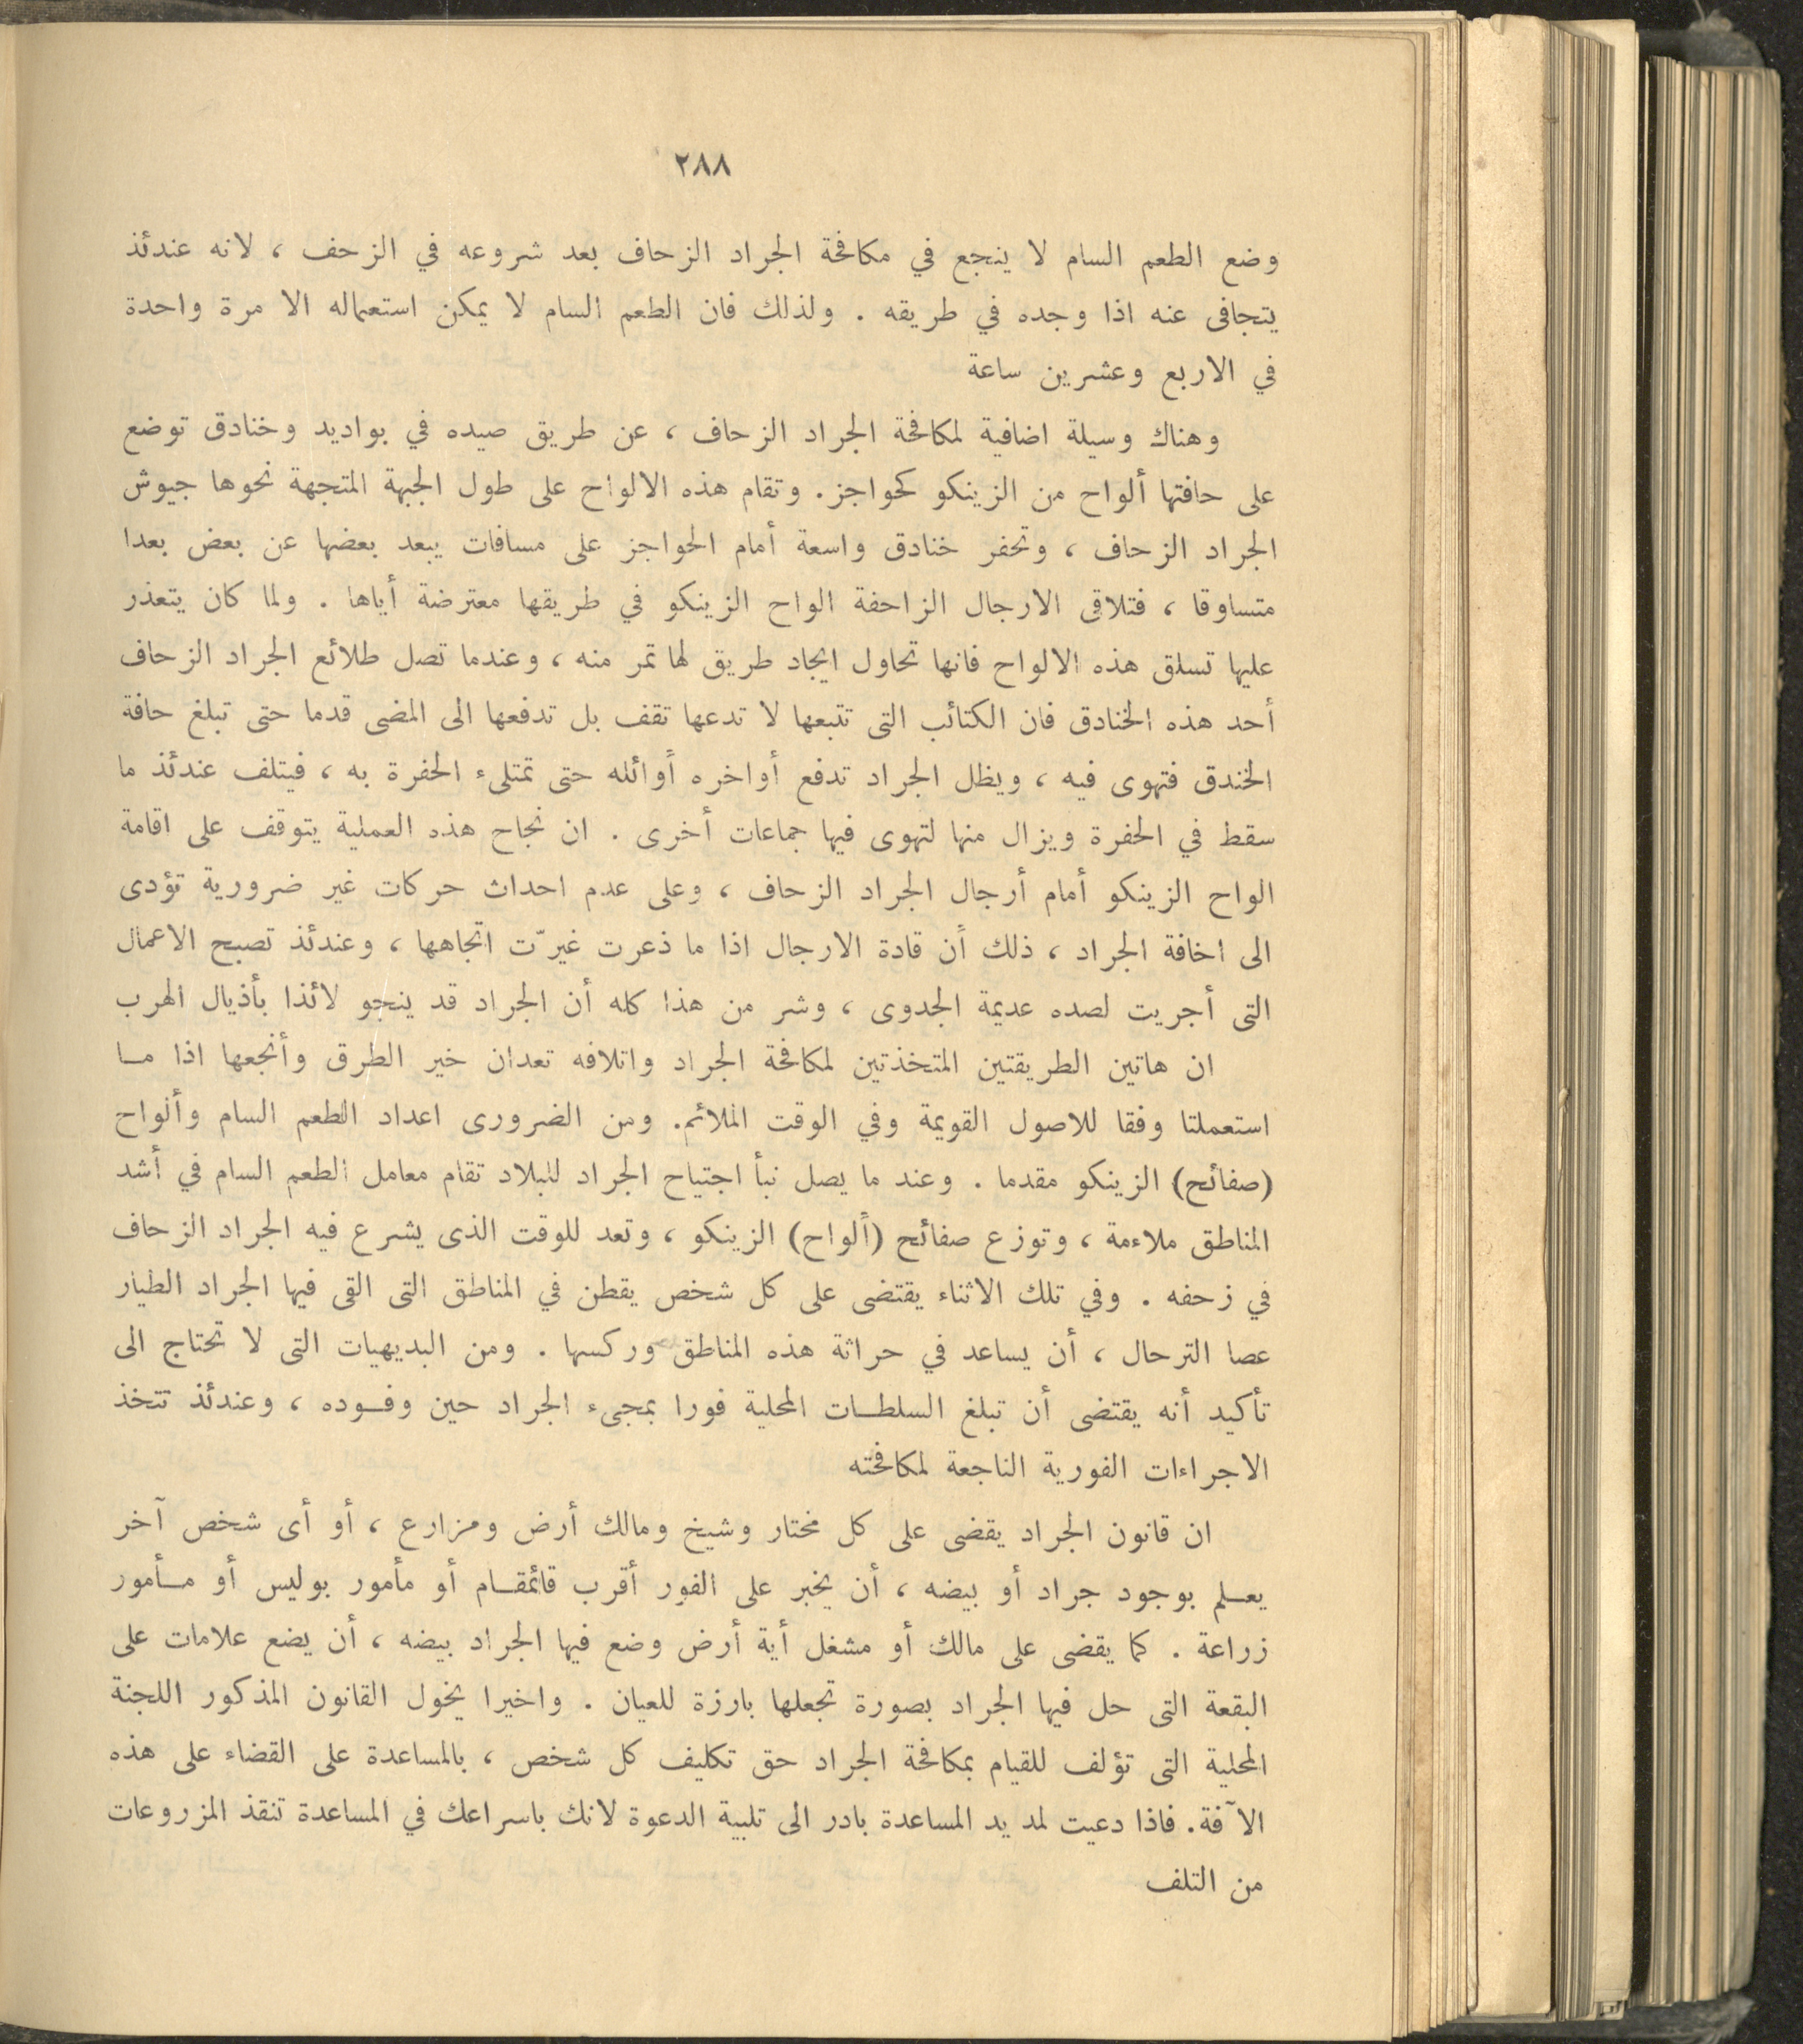 ٢٨٨
وضع الطعم السام لا ينجع في مكافحة الجراد الزحاف بعد شروعه في الزحف ، لانه عندئذ
يتجافى عنه اذا وجده في طريقه . ولذلك فان الطعم السام لا يمكن استعماله الا مرة واحدة
في الاربع وعشرين ساعة
وهناك وسيلة اضافية لمكافحة الجراد الزحاف ، عن طريق صيده في بواديد وخنادق توضع
على حافتها ألواح من الزينكو كحواجز. وتقام هذه الالواح على طول الجبهة المتجهة نحوها جيوش
الجراد الزحاف ، وتحفر خنادق واسعة أمام الحواجز على مسافات يبعد بعضها عن بعض بعدا
متساوقا ، فتلاقى الارجال الزاحفة الواح الزينكو في طريقها معترضة أياها . ولما كان يتعذر
عليها تسلق هذه الالواح فانها تحاول ايجاد طريق لها تمر منه ، وعندما تصل طلائع الجراد الزحاف
أحد هذه الخنادق فان الكتائب التى تتبعها لا تدعها تقف بل تدفعها الى المضى قدما حتى تبلغ حافة
الخندق فتهوى فيه ، ويظل الجراد تدفع أواخره أوائله حتى تمتلىء الحفرة به ، فيتلف عندئذ ما
سقط في الحفرة ويزال منها لتهوى فيها جماعات أخرى . ان نجاح هذه العملية يتوقف على اقامة
الواح الزينكو أمام أرجال الجراد الزحاف ، وعلى عدم احداث حركات غير ضرورية تؤدى
الى اخافة الجراد ، ذلك أن قادة الارجال اذا ما ذعرت غيرّت اتجاهها ، وعندئذ تصبح الاعمال
التى أجريت لصده عديمة الجدوى ، وشر من هذا كله أن الجراد قد ينجو لائذا بأذيال الهرب
ان هاتين الطريقتين المتخذتين لمكافحة الجراد واتلافه تعدان خير الطرق وأنجعها اذا مـا
استعملتا وفقا للاصول القويمة وفي الوقت الملائم. ومن الضرورى اعداد الطعم السام وألواح
(صفائح) الزينكو مقدما . وعند ما يصل نبأ اجتياح الجراد للبلاد تقام معامل الطعم السام في أشد
المناطق ملاءمة ، وتوزع صفائح (ألواح) الزينكو ، وتعد للوقت الذى يشرع فيه الجراد الزحاف
في زحفه . وفي تلك الاثناء يقتضى على كل شخص يقطن في المناطق التى القى فيها الجراد الطيار
عصا الترحال ، أن يساعد في حراثة هذه المناطق وركسها . ومن البديهيات التى لا تحتاج الى
تأكيد أنه يقتضى أن تبلغ السلطـات المحلية فورا بمجىء الجراد حين وفـوده ، وعندئذ تتخذ
الاجراءات الفورية الناجعة لمكافحته
ان قانون الجراد يقضى على كل مختار وشيخ ومالك أرض ومزارع ، أو أى شخص آخر
يعـلم بوجود جراد أو بيضه ، أن يخبر على الفور أقرب قائمقـام أو مأمور بوليس أو مـأمور
زراعة . كما يقضى على مالك أو مشغل أية أرض وضع فيها الجراد بيضه ، أن يضع علامات على
البقعة التى حل فيها الجراد بصورة تجعلها بارزة للعيان . واخيرا يخول القانون المذكور اللجنة
المحلية التى تؤلف للقيام بمكافحة الجراد حق تكليف كل شخص ، بالمساعدة على القضاء على هذه
الآفة. فاذا دعيت لمد يد المساعدة بادر الى تلبية الدعوة لانك باسراعك في المساعدة تنقذ المزروعات
من التلف